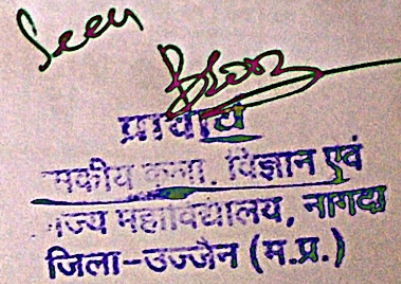 Seen
प्राचार्य
कला, विज्ञान एवं
महाविद्यालय, नागदा
जिला-उज्जैन (म.प्र.)